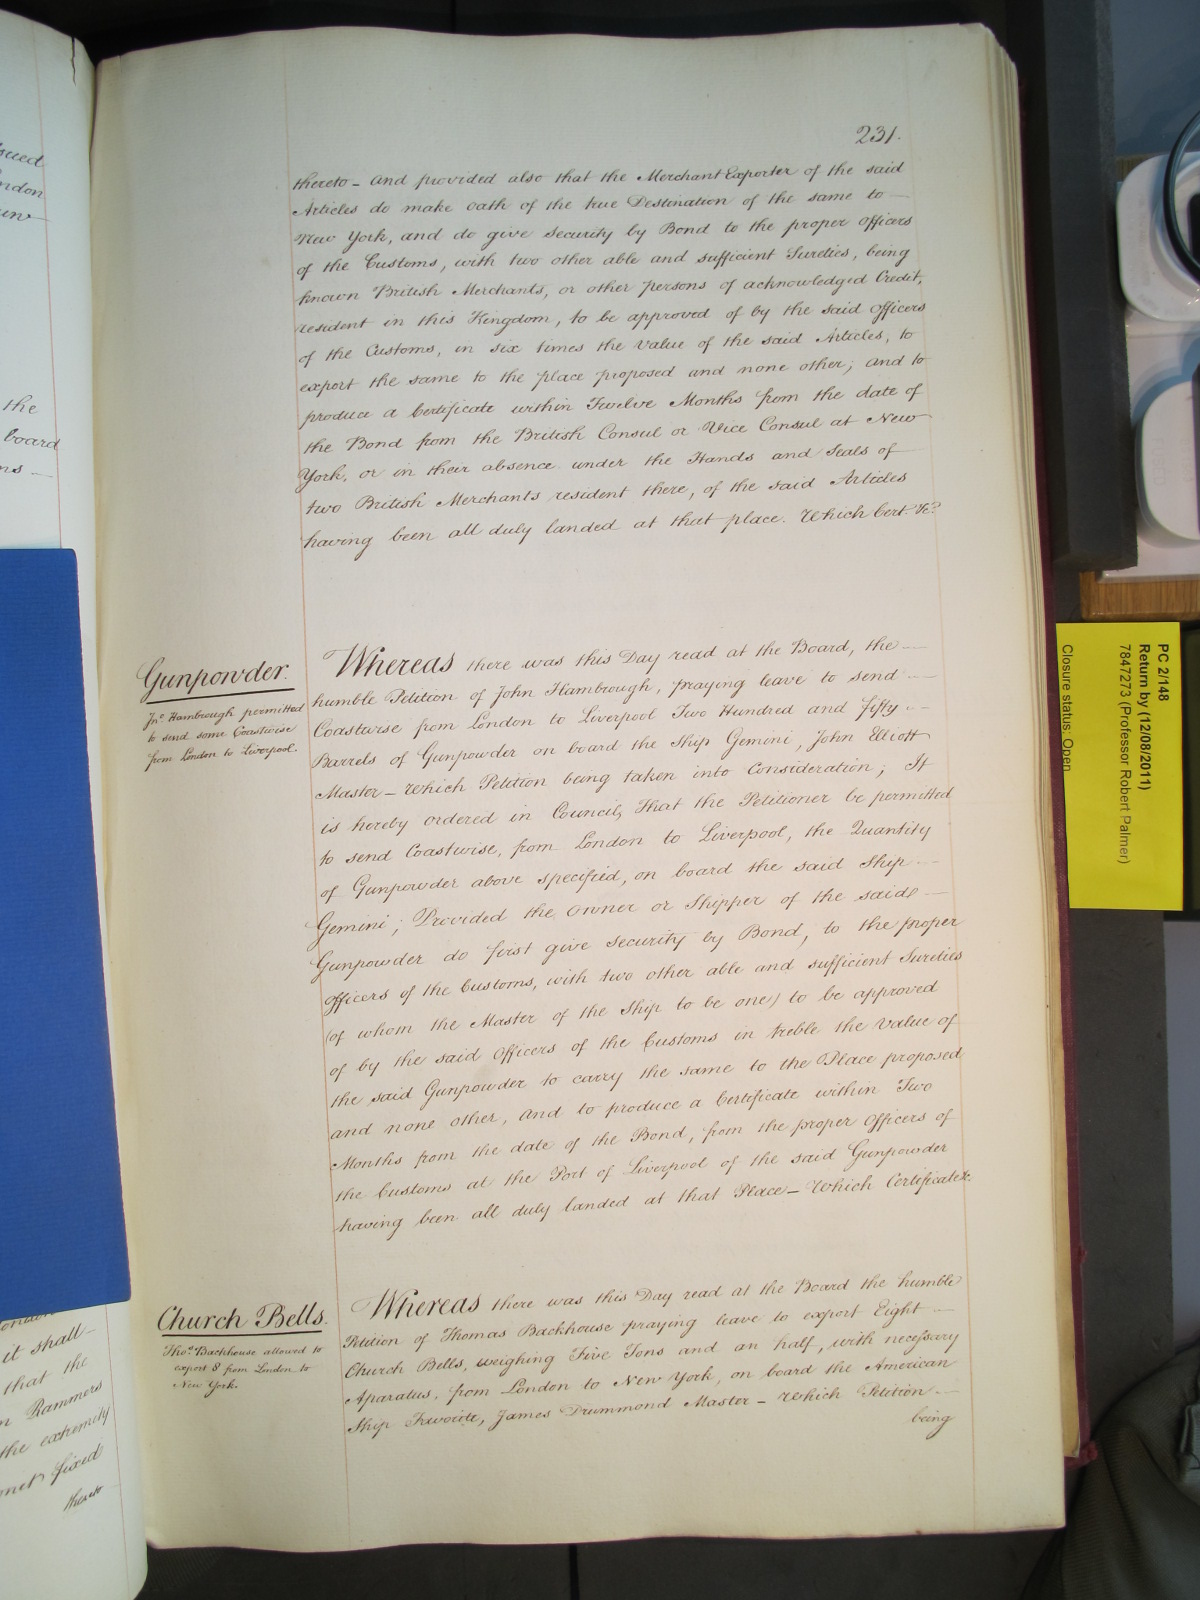 sued
ndon
the
board
ns —
it shall
that the
n Rammers
the extremity
fixed
thereto
231.
thereto – and provided also that the Merchant Exporter of the said
Articles do make oath of the true Destination of the same to —
New York, and do give security by Bond to the proper officers
of the Customs, with two other able and sufficient Sureties, being
known British Merchants, or other persons of acknowledged Credit,
resident in this Kingdom, to be approved of by the said officers
of the Customs, in six times the value of the said Articles, to
export the same to the place proposed and none other; and to
produce a Certificate within Twelve Months from the date of
the Bond from the British Consul or Vice Consul at New
York, or in their absence under the Hands and Seals of
two British Merchants resident there, of the said Articles
having been all duly landed at that place. Which Cert. &c.
Gunpowder.
Jno. Hambrough permitted
to send some Coastwise
from London to Liverpool.
Whereas there was this Day read at the Board, the
humble Petition of John Hambrough, praying leave to send
Coastwise from London to Liverpool Two Hundred and fifty
Barrels of Gunpowder on board the Ship Gemini, John Elliott
Master – Which Petition being taken into Consideration; It
is hereby ordered in Council, That the Petitioner be permitted
to send Coastwise, from London to Liverpool, the Quantity
of Gunpowder above specified, on board the said Ship
Gemini; Provided the Owner or Shipper of the said —
Gunpowder do first give security by Bond, to the proper
officers of the Customs, with two other able and sufficient Sureties
(of whom the Master of the Ship to be one) to be approved
of by the said Officers of the Customs in treble the value of
the said Gunpowder to carry the same to the Place proposed
and none other, and to produce a Certificate within Two
Months from the date of the Bond, from the proper Officers of
the Customs at the Port of Liverpool of the said Gunpowder
having been all duly landed at that Place – Which Certificate &c.
Church Bells.
Thos. Backhouse allowed to
export 8 from London to
New York.
Whereas there was this Day read at the Board the humble
Petition of Thomas Backhouse praying leave to export Eight
Church Bells, weighing Five Tons and an half, with necessary
Aparatus, from London to New York, on board the American
Ship Favorite, James Drummond Master – Which Petition
being
PC 2/148
Return by (12/08/2011)
7847273 (Professor Robert Palmer)
Closure status: Open